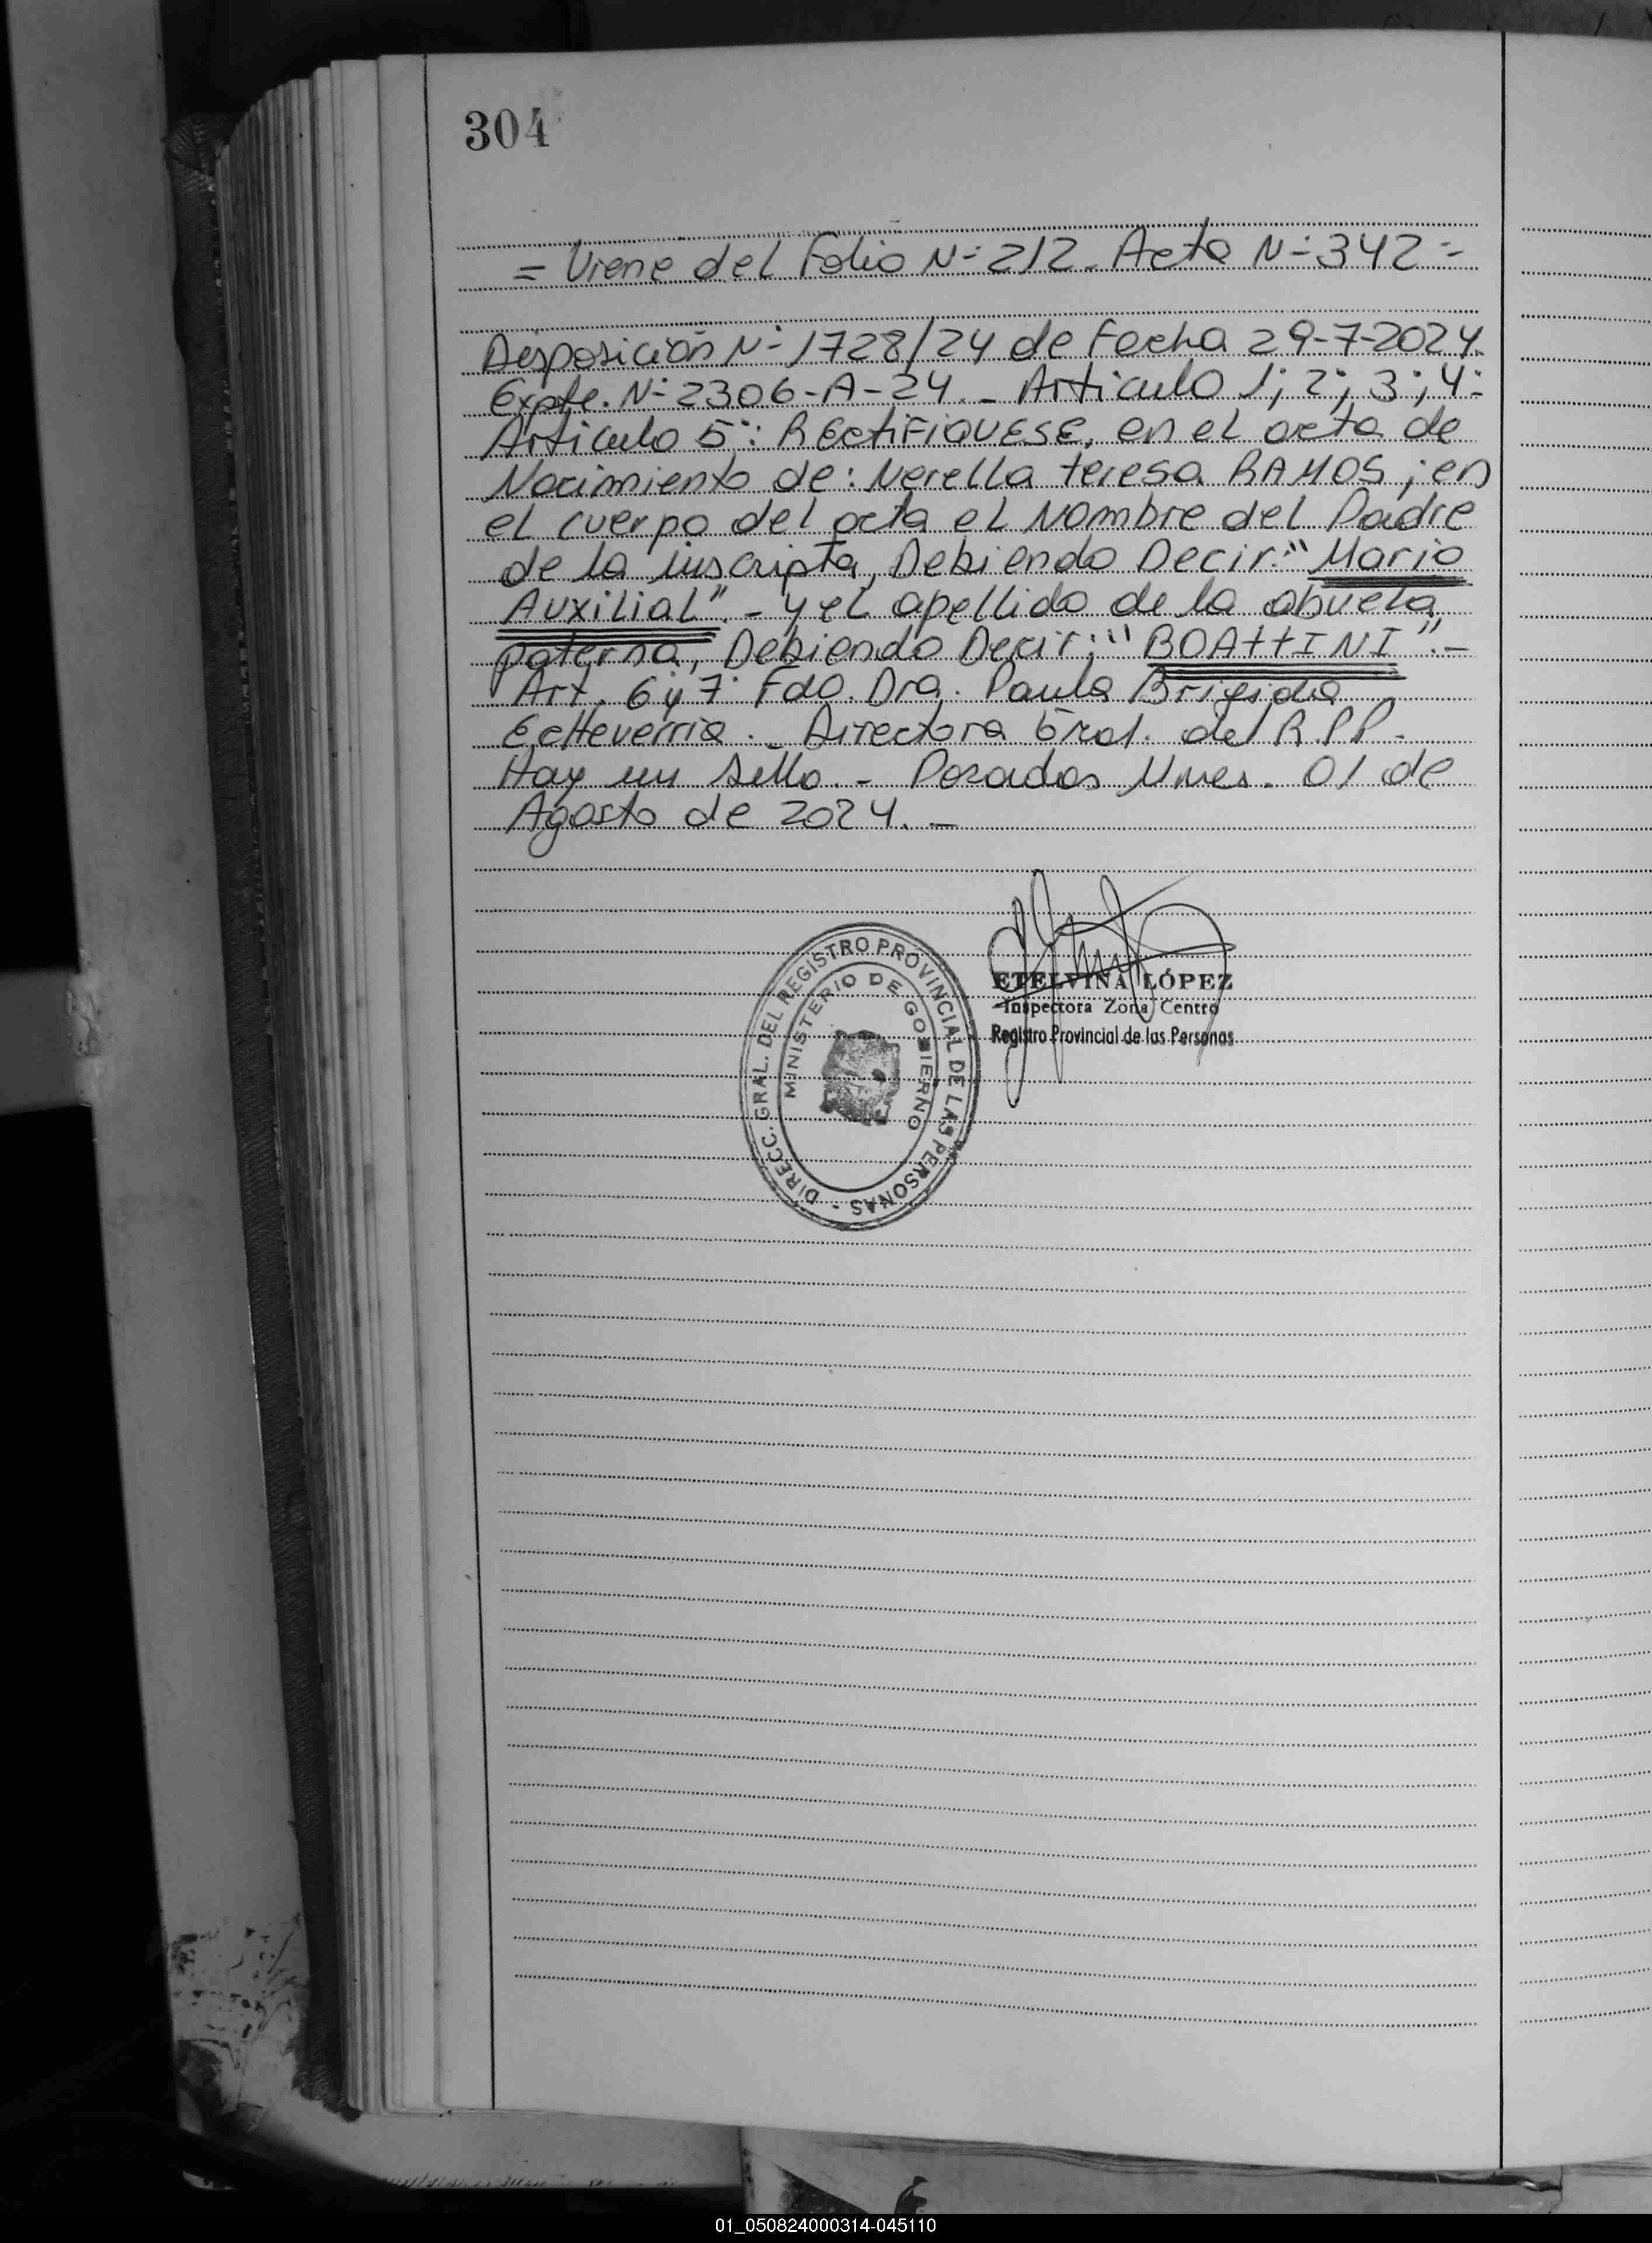 304
= Viene del Folio N- 212. Acta N- 342 =
Disposición N- 1728/24 de Fecha 29-7-2024.
Expte. N- 2306-A-24. - Articulo 1; 2; 3; 4:
Articulo 5: RECTIFIQUESE, en el acta de
Nacimiento de: Nerella teresa RAMOS; en
el cuerpo del acta el Nombre del Padre
de la inscripta, Debiendo Decir: "Mario
Auxilial". - y el apellido de la abuela
paterna, Debiendo Decir: "BOATTINI". -
Art. 6 y 7 Fdo. Dra. Paula Brigida
Echeverria. - Directora Gral. del R.P.P.
Hay un Sello. - Posadas Mnes. 01 de
Agosto de 2024. -
ETELVINA LÓPEZ
Inspectora Zona Centro
Registro Provincial de las Personas
DIRECC. GRAL. DEL REGISTRO PROVINCIAL DE LAS PERSONAS -
MINISTERIO DE GOBIERNO
01_050824000314-045110